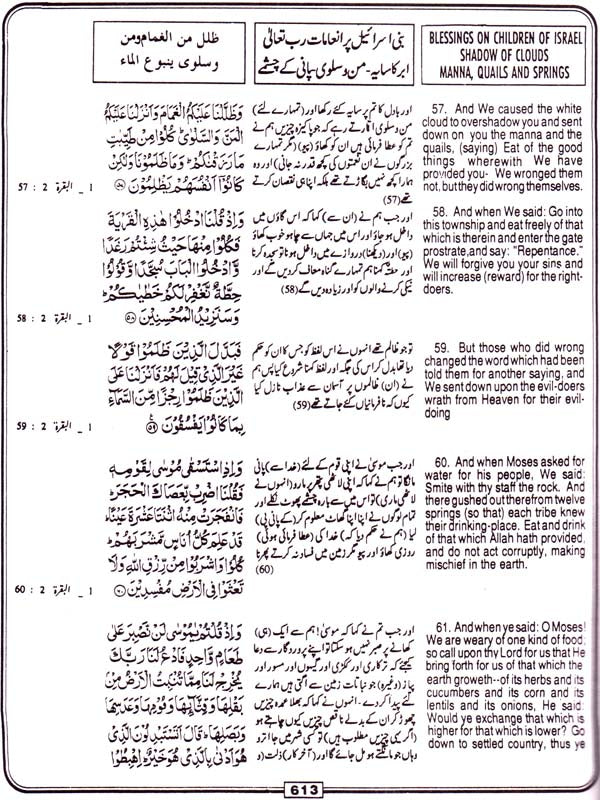 ظلل من الغمام ومن
وسلوى ينبوع الماء
بنی اسرائیل پر انعامات رب تعالیٰ
ابر کا سایہ - من و سلویٰ پانی کے چشمے
BLESSINGS ON CHILDREN OF ISRAEL
SHADOW OF CLOUDS
MANNA, QUAILS AND SPRINGS
وَظَلَّلْنَا عَلَيْكُمُ الْغَمَامَ وَاَنْزَلْنَا عَلَيْكُمُ
الْمَنَّ وَالسَّلْوٰى كُلُوْا مِنْ طَيِّبٰتِ
مَا رَزَقْنٰكُمْ وَمَا ظَلَمُوْنَا وَلٰكِنْ
كَانُوْٓا اَنْفُسَهُمْ يَظْلِمُوْنَ ۝۵۷
1 _ البقرة 2 : 57
اور بادل کا تم پر سایہ کئے رکھا اور (تمہارے لئے)
من و سلویٰ اتارتے رہے کہ جو پاکیزہ چیزیں ہم نے
تم کو عطا فرمائی ہیں ان کو کھاؤ (پیو) (مگر تمہارے
بزرگوں نے ان نعمتوں کی کچھ قدر نہ جانی) اور وہ
ہمارا کچھ نہیں بگاڑتے تھے بلکہ اپنا ہی نقصان کرتے
تھے (57)
57. And We caused the white
cloud to overshadow you and sent
down on you the manna and the
quails, (saying) Eat of the good
things wherewith We have
provided you- We wronged them
not, but they did wrong themselves.
وَاِذْ قُلْنَا ادْخُلُوْا هٰذِهِ الْقَرْيَةَ
فَكُلُوْا مِنْهَا حَيْثُ شِئْتُمْ رَغَدًا
وَّادْخُلُوا الْبَابَ سُجَّدًا وَّقُوْلُوْا
حِطَّةٌ نَّغْفِرْ لَكُمْ خَطٰيٰكُمْ
وَسَنَزِيْدُ الْمُحْسِنِيْنَ ۝۵۸
1 _ البقرة 2 : 58
اور جب ہم نے (ان سے) کہا کہ اس گاؤں میں
داخل ہو جاؤ اور اس میں جہاں سے چاہو خوب کھاؤ
(پیو) اور (دیکھنا) دروازے میں داخل ہونا تو سجدہ کرنا
اور حطۃ کہنا ہم تمہارے گناہ معاف کر دیں گے اور
نیکی کرنے والوں کو اور زیادہ دیں گے (58)
58. And when We said: Go into
this township and eat freely of that
which is therein and enter the gate
prostrate,and say: "Repentance."
We will forgive you your sins and
will increase (reward) for the right-
doers.
فَبَدَّلَ الَّذِيْنَ ظَلَمُوْا قَوْلًا
غَيْرَ الَّذِيْ قِيْلَ لَهُمْ فَاَنْزَلْنَا عَلَى
الَّذِيْنَ ظَلَمُوْا رِجْزًا مِّنَ السَّمَآءِ
بِمَا كَانُوْا يَفْسُقُوْنَ ۝۵۹
1 _ البقرة 2 : 59
تو جو ظالم تھے انہوں نے اس لفظ کو جس کا ان کو حکم
دیا تھا بدل کر اس کی جگہ اور لفظ کہنا شروع کیا پس ہم
نے (ان) ظالموں پر آسمان سے عذاب نازل کیا
کیوں کہ نافرمانیاں کئے جاتے تھے (59)
59. But those who did wrong
changed the word which had been
told them for another saying, and
We sent down upon the evil-doers
wrath from Heaven for their evil-
doing
وَاِذِ اسْتَسْقٰى مُوْسٰى لِقَوْمِهٖ
فَقُلْنَا اضْرِبْ بِّعَصَاكَ الْحَجَرَ
فَانْفَجَرَتْ مِنْهُ اثْنَتَا عَشْرَةَ عَيْنًا
قَدْ عَلِمَ كُلُّ اُنَاسٍ مَّشْرَبَهُمْ
كُلُوْا وَاشْرَبُوْا مِنْ رِّزْقِ اللّٰهِ وَلَا
تَعْثَوْا فِى الْاَرْضِ مُفْسِدِيْنَ ۝۶۰
1 _ البقرة 2 : 60
اور جب موسیٰ نے اپنی قوم کے لئے (خدا سے) پانی
مانگا تو ہم نے کہا کہ اپنی لاٹھی پتھر پر مارو (انہوں نے
لاٹھی ماری) تو اس میں سے بارہ چشمے پھوٹ نکلے اور
تمام لوگوں نے اپنا اپنا گھاٹ معلوم کر (کے پانی پی)
لیا (ہم نے حکم دیا کہ) خدا کی (عطا فرمائی ہوئی)
روزی کھاؤ اور پیو مگر زمین میں فساد نہ کرتے پھرنا
(60)
60. And when Moses asked for
water for his people, We said:
Smite with thy staff the rock. And
there gushed out therefrom twelve
springs (so that) each tribe knew
their drinking-place. Eat and drink
of that which Allah hath provided,
and do not act corruptly, making
mischief in the earth.
وَاِذْ قُلْتُمْ يٰمُوْسٰى لَنْ نَّصْبِرَ عَلٰى
طَعَامٍ وَّاحِدٍ فَادْعُ لَنَا رَبَّكَ
يُخْرِجْ لَنَا مِمَّا تُنْۢبِتُ الْاَرْضُ مِنْۢ
بَقْلِهَا وَقِثَّآئِهَا وَفُوْمِهَا وَعَدَسِهَا
وَبَصَلِهَا قَالَ اَتَسْتَبْدِلُوْنَ الَّذِيْ
هُوَ اَدْنٰى بِالَّذِيْ هُوَ خَيْرٌ اِهْبِطُوْا
اور جب تم نے کہا کہ موسیٰ! ہم سے ایک (ہی)
کھانے پر صبر نہیں ہو سکتا تو اپنے پروردگار سے دعا
کیجئے کہ ترکاری اور ککڑی اور گیہوں اور مسور اور
پیاز (وغیرہ) جو نباتات زمین سے اگتی ہیں ہمارے
لئے پیدا کر دے۔ انہوں نے کہا کہ بھلا عمدہ چیزیں
چھوڑ کر ان کے بدلے ناقص چیزیں کیوں چاہتے ہو
(اگر یہی چیزیں مطلوب ہیں) تو کسی شہر میں جا اترو
وہاں جو مانگتے ہو مل جائے گا اور (آخر کار) ذلت (و
61. And when ye said: O Moses!
We are weary of one kind of food;
so call upon thy Lord for us that He
bring forth for us of that which the
earth groweth--of its herbs and its
cucumbers and its corn and its
lentils and its onions, He said:
Would ye exchange that which is
higher for that which is lower? Go
down to settled country, thus ye
613